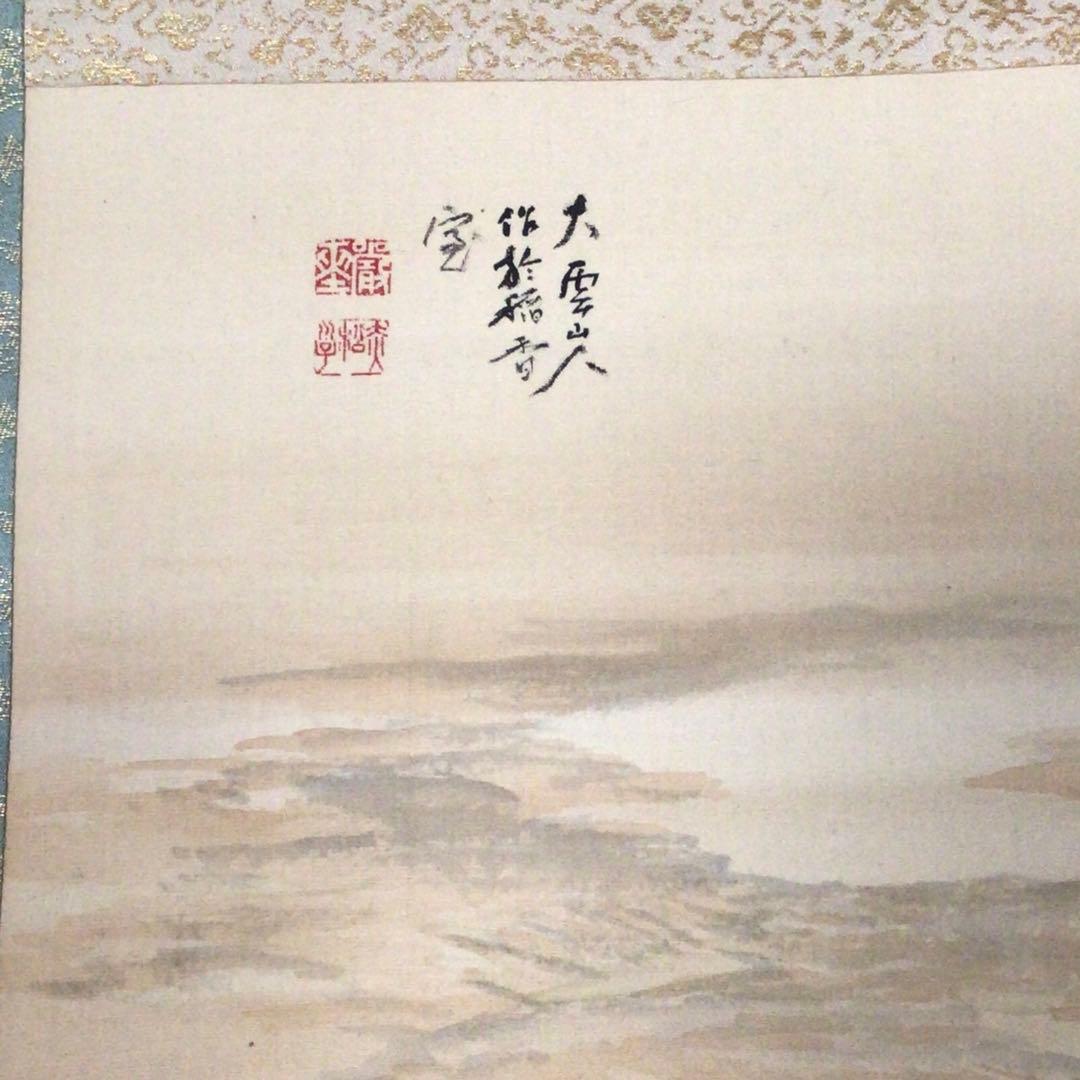 大雲山人
作於稻香
室